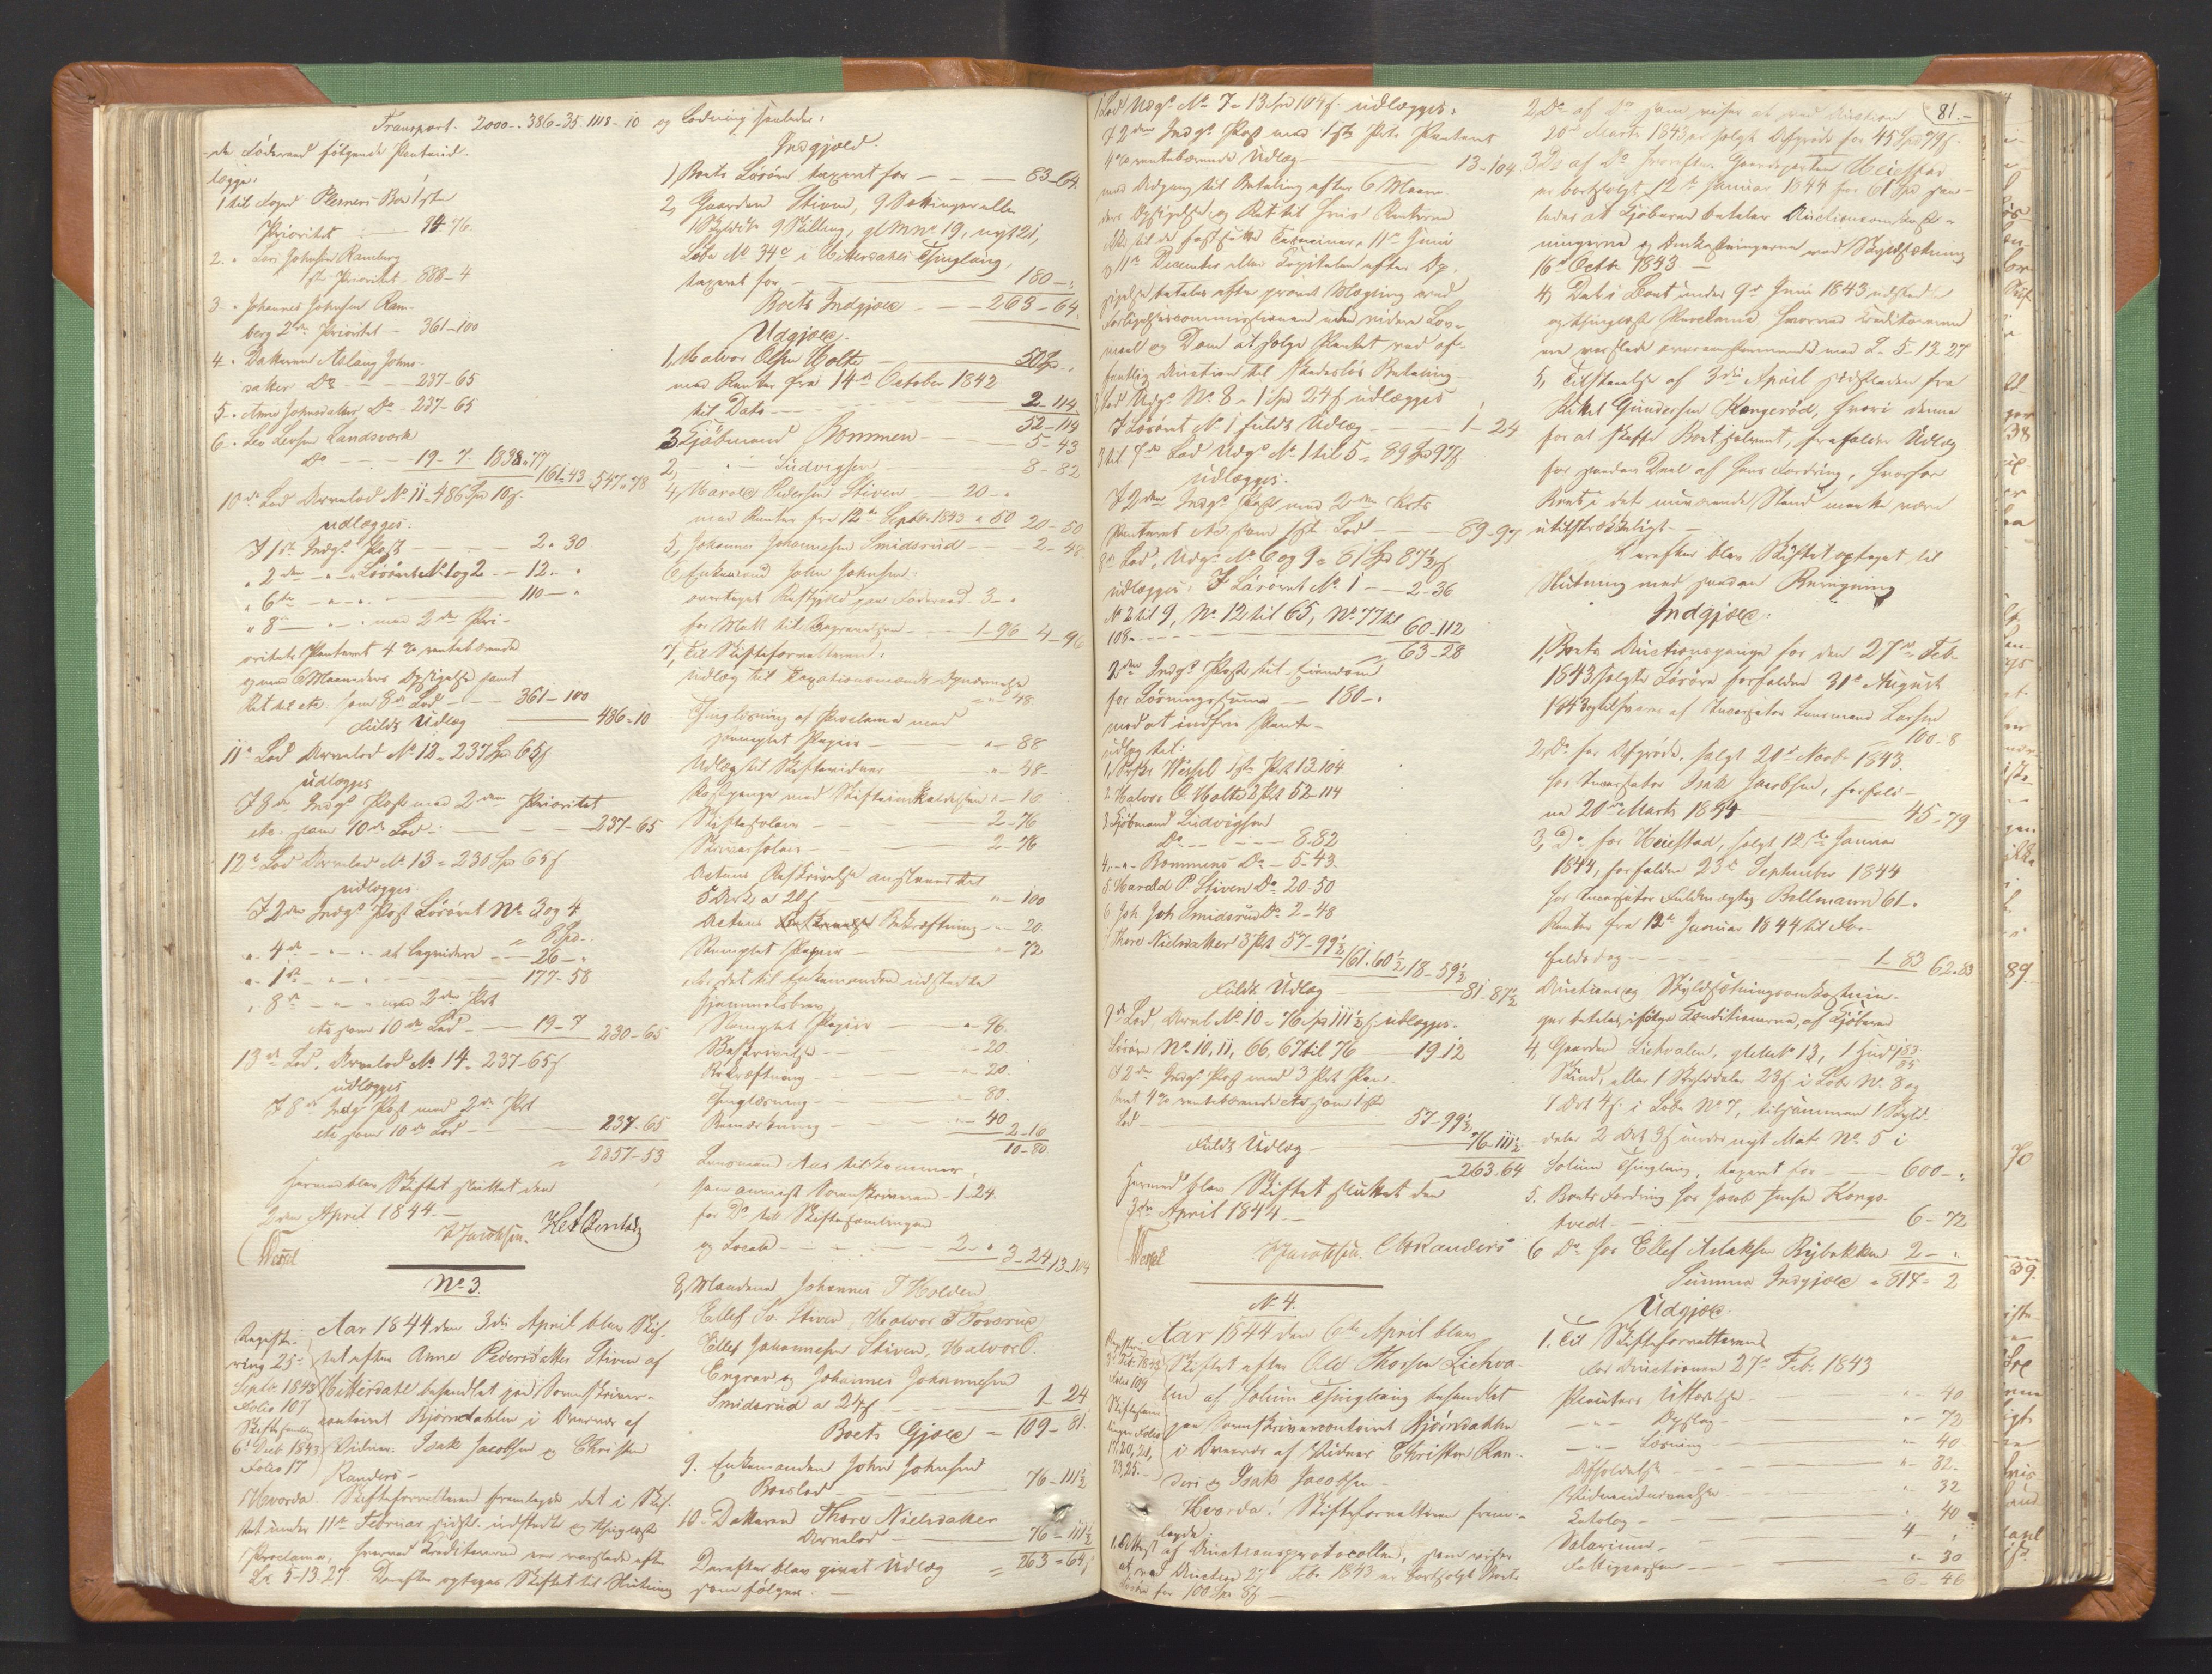 Transport. 2000 - 386-35. 1118-10
de Föderaad følgende Panteud-
lægge:
1 til Foged Plesners Bo 1ste
Prioritet - 94-76.
2. " Lars Johnsen Ramberg
1ste Prioritet - 888-4
3. " Johannes Johnsen Ram-
berg 2den Prioritet - 361-100
4. " Datteren Aslaug Johns-
datter Do - 237-65
5. " Anne Johnsdatter, Do - 237-65
6. " Lars Larsen Landsverk
Do - 19-7. 1838"77
161-43 547"78
10de Lod Arvelod No 11 - 486 Spd 10 s.
udlægges:
I 1ste Indgs Post - 2"30
" 2den - " - Lösöret No 1 og 2 - 12 "
" 6te - " - 110 - "
" 8de - " - med 2den Pri-
oritets Panteret 4 % rentebærende
og med 6 Maaneders Opsigelse samt
Ret etc. som 8de Lod - 361-100
Fuldt Udlæg - 486-10
11te Lod Arvelod No 12 - 237 Spd 65 s
udlægges
I 8de Indgs Post med 2den Prioritet
etc. som 10de Lod - 237-65
12te Lod Arvelod No 13 - 230 Spd 65 s
udlægges
I 2den Indgs Post Lösöret No 3 og 4
" 8 Spd.
" 4de - " - at legvidere - 26 - "
" 1ste - " - 177-58
" 8de - " - med 2den Prt
etc som 10de Lod - 19-7 230-65
13de Lod, Arvelod No 14 - 237-65 s
udlægges
I 8de Indgs Post med 2den Prt
etc som 10de Lod - 237-65
2857-53
Hermed blev Skiftet sluttet den
2den April 1844. -
Wessel I Jacobsen.
No 3.
Aar 1844 den 3die April blev Skif-
tet efter Anne Pedersdatter Stiven af
Hitterdahl behandlet paa Sorenskriver-
contoiret Bjørndahlen i Overvær af
Vidner: Isak Jacobsen og Christen
Randers -
Registre-
ring 25de
Septr. 1843
Folio 107
Skiftesamling
6te Decb 1843
Folio 17
Hvorda. Skifteforvalteren fremlagde det i Skif-
tet under 11te Februar sidstl. udstedte og thinglæste
Proclama, hvorved Creditorerne var varslede efter
L. 5-13-27. Derefter optages Skiftet til Slutning
og Lodning saaledes:
Indgjæld.
1) Boets Lösöre taxeret for - 83-64.
2, Gaarden Stiven, 9 Settinger eller
1 Skylddr 9 Skilling, gl Mno 19, nyt 21,
Løbe No 34a i Hitterdahls Thinglaug,
taxeret for, - 180-"
Boets Indgjæld - 263-64.
Udgjæld.
1, Halvor Olsen Holte - 50 Sp.
med Renter fra 14de October 1842
til Dato - 2-114
52-114
3 Kjöbmand Bommen - 5-43
2, " - Ludvigsen - 8-82
4, Harald Pedersen Stiven - 20-"
med Renter fra 12te Septbr 1843 " 50 20-50
5, Johannes Johannesen Smidsrud - 2-48
6, Enkemand John Johnsen
overtaget Restgjæld paa Föderaad 3-"
for Malt til Begravelsen - 1-96 4-96
7, Til Skifteforvalteren:
Udlæg til Taxationsmænds Opnævnelse
" - 48
Thinglæsning af Proclama med
stemplet Papiir - " - 88
Udlæg til Skiftevidner - " - 48 -
Postpenge med Skifteindkaldelsen " - 16
Skiftesalair - 2-76
Skriversalair - 2-76
Actens Beskrivelse anslaaes til
5 Ark a 20 s - " - 100
Actens Bekræftning - " - 20.
Stemplet Papiir - " - 72
For det til Enkemanden udstedte
Hjemmelsbrev
Stemplet Papiir - " - 96.
Beskrivelse - " - 20.
Bekræftning - " - 20.
Thinglæsning - " - 80.
Remærkning - " - 40
2-16
10-80
Lensmand Aas tilkommer,
som anviist Sorenskriveren - 1-24.
for Do til Skiftesamlingen
og Locale - 2-" 3-24 13-104
8, Mændene Johannes J Holden,
Ellef Sv. Stiven, Halvor T Tovsrud,
Ellef Johannesen Stiven, Halvor O.
Engrav og Johannes Johannesen
Smidsrud a 24 s - 1-24
Boets Gjæld - 109-81
9. Enkemanden John Johnsen
Boeslod - 76-111½
10. Datteren Thore Nielsdatter
Arvelod - 76-111½
263-64
Derefter blev givet Udlæg
som følger: -
1ste Lod Udgs No 7 - 13 Spd 104 s. udlægges:
I 2den Indgs Post med 1ste Prts Panteret
4 % rentebærende Udlæg - 13-104
med Adgang til Betaling efter 6 Maane-
ders Opsigelse og Ret til hvis Renterne
ikke til de fastsatte Terminer, 11te Juni
og 11te December eller Capitalen efter Op-
sigelse betales efter prøvet Mægling ved
Forligelsescommissionen uden videre Lov-
maal og Dom at sælge Pantet ved of-
fentlig Auction til skadeslös Betaling -
2det Lod Udgs No 8 - 1 Spd 24 s udlægges
I Lösöret No 1 fuldt Udlæg - 1-24
3die til 7de Lod Udgs No 1 til 5 - 89 Spd 97 s
udlægges:
I 2den Indgs Post med 2den Prts
Panteret etc. som 1ste Lod - 89-97
8de Lod, Udgs No 6 og 9 = 81 Spd 87½ s
udlægges: I Lösöret No 1 - 2-36
No 2 til 9, No 12 til 65, No 77 til
108 - 60-112
63-28
2den Indgs Post til Eiendom
for Løsningssum - 180-"
mod at indfrie Pante-
udlæg til:
1, Sorskr Wessel 1ste Prt 13-104
2 Halvor O. Holte 2 Prt 52-114
3 Kjöbmand Ludvigsen
Do - 8-82
4, - " - Bommens Do - 5-43.
5. Harald P. Stiven Do 20-50
6 Joh Joh Smidsrud Do 2-48
Thore Nielsdatter 3 Prt 57-99½
161.60½ 18-59½
Fuldt Udlæg - 81-87½
9de Lod, Arvel No 10 - 76 Spd 111½ s udlægges.
Lösöre No 10, 11, 66, 67 til 76 - 19-12
I 2den Indgs Post med 3 Prt Pan-
teret 4 % rentebærende etc som 1ste
Lod - 57-99½
Fuldt Udlæg - 76-111½
263-64
Hermed blev Skiftet sluttet den
3die April 1844 -
Wessel I Jacobsen. C. Randers
No 4.
Aar 1844 den 6te April blev
Skiftet efter Ole Thorsen Liehva-
len af Solum Thinglaug behandlet
paa Sorenskrivercontoiret Bjørndahlen
i Overvær af Vidner Christen Ran-
ders og Isak Jacobsen -
Registring
Feb. 1843
Folio 109
Skiftesam-
linger Folio
17, 20, 21,
23, 25. -
Hvorda! Skifteforvalteren frem-
lagde:
1, Attest af Auctionsprotocollen, som viser
at ved Auction 27 Feb. 1843 er bortsolgt Boets
Lösöre for 100 Spd 8 s -
81. -
2, Do af Do som viser at ved Auction
20de Marts 1843 er solgt Afgrøde for 45 Spd 79 s.
3, Do af Do hvorefter Gaardeparten Heiestad
er bortsolgt 12te Januar 1844 for 61 Spd saa-
ledes at Kjøberen betaler Auctionsomkost-
ningerne og Omkostningerne ved Skyldsætning
16de Octbr 1843 -
4, Det i Boet under 9de Juni 1843 udstedte
og thinglæste Proclama, hvorved Creditorerne
ere varslede overeensstemmende med L. 5-13-27
5, Tilstaaelse af 3die April sidstleden fra
Kittel Gundersen Kongerød, hvori denne
for at skaffe Boet solvent, frafalder Udlæg
for saadan Deel af hans Fordring, hvorfor
Boet i det nuværende Stand maatte være
utilstrækkeligt -
Derefter blev Skiftet optaget til
Slutning med saadan Beregning
Indgjæld:
1, Boets Auctionspenge for den 27de Feb.
1843 solgte Lösöre forfalden 31te August
1843 og tilsvares af Incassator Lensmand Larsen
100-8
2, Do for Afgrøde, solgt 20de Novb. 1843.
hos Incassator Isak Jacobsen, forfald-
ne 20de Marts 1844 - 45-79
3, Do for Heiestad, solgt 12te Januar
1844, forfalden 23de September 1844
hos Incassator Fuldmægtig Bollmann 61 -
Renter fra 12te Januar 1844 til For-
faldsdag - 1-83 62-83
Auctions og Skyldsætningsomkostnin-
ger betales, ifølge Conditionerne, af Kjøberen
4, Gaarden Liehvalen, gl Mat No 13, 1 Hud 1 83/85
Skind, eller 1 Skylddaler 23 s i Løbe No 8 og
1 Ort 4 s. i Løbe No 7, tilsammen 1 Skyld-
daler 2 Ort 3 s under nyt Mat. No 5 i
Solum Thinglaug, taxeret for - 600-"
5. Boets Fordring hos Jacob Jensen Konge-
tvedt - 6-72
6 Do hos Ellef Aslaksen Bybakken 2-"
Summa Indgjæld - 817-2
Udgjæld.
1. Til Skifteforvalteren
For Auctionen 27de Feb. 1843
Placaters Udstedelse - " - 40
- " - Opslag - " - 72
- " - Læsning - " - 40
Afholdelse - " - 32 -
Vidneudnævnelse - " 32
Catalog - " 40
Salarium - 4 - "
Fattigcassen - " - 30
6-46